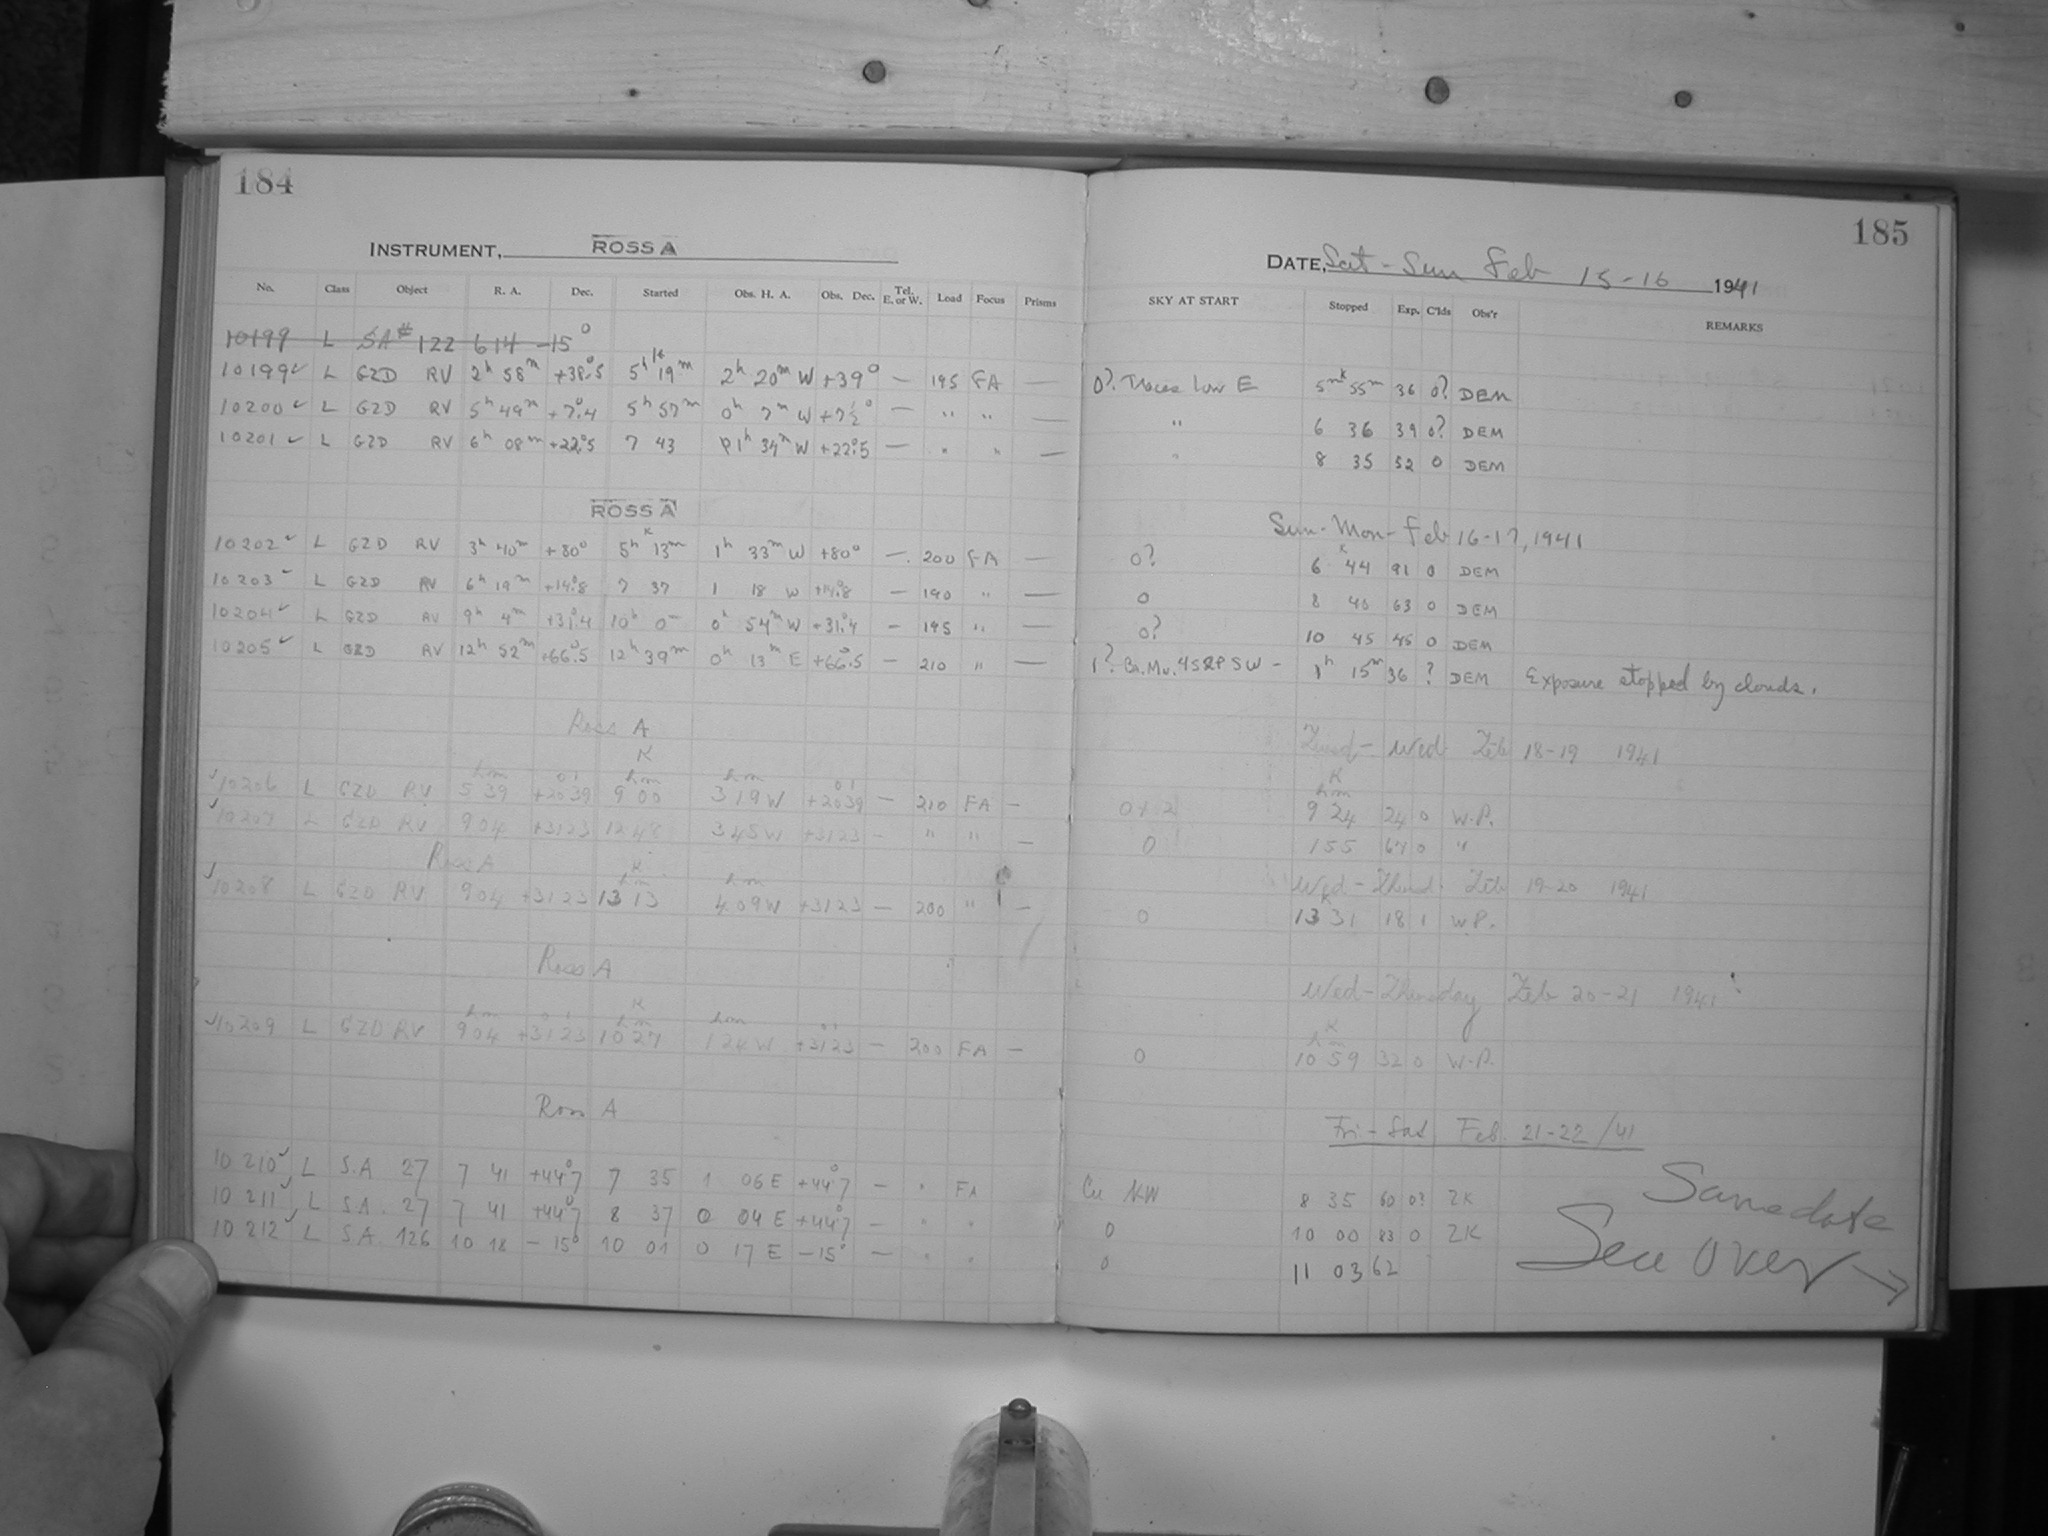 184
INSTRUMENT, ROSS A
No. Class Object R. A. Dec. Started Obs. H. A. Obs. Dec. Tel. E. or W. Load Focus Prisms
10199 L SA# 122 6 14 -15°
10199✓ L GZD RV 2h 58m +38°.5 5h 19m 2h 20m W +39° — 195 FA —
10200✓ L GZD RV 5h 49m +7°.4 5h 57m 0h 7m W +7½° — " " —
10201✓ L GZD RV 6h 08m +22°.5 7 43 1h 34m W +22°.5 — " " —
ROSS A
10202✓ L GZD RV 3h 40m +80° 5h 13m 1h 33m W +80° — 200 FA —
10203✓ L GZD RV 6h 19m +14°.8 7 37 1 18 W +14°.8 — 190 " —
10204✓ L GZD RV 9h 4m +31°.4 10h 0m 0h 54m W +31°.4 — 195 " —
10205✓ L GZD RV 12h 52m +66°.5 12h 39m 0h 13m E +66°.5 — 210 " —
Ross A
K
✓10206 L GZD RV 5 39 +20 39 9 00 3 19 W +20 39 — 210 FA —
✓10207 L GZD RV 9 04 +31 23 12 48 3 45 W +31 23 — " " —
Ross A
✓10208 L GZD RV 9 04 +31 23 13 13 4 09 W +31 23 — 200 " —
Ross A
✓10209 L GZD RV 9 04 +31 23 10 27 1 24 W +31 23 — 200 FA —
Ross A
10210✓ L S.A 27 7 41 +44°7 7 35 1 06 E +44°7 — " FA
10211✓ L S.A. 27 7 41 +44°7 8 37 0 04 E +44°7 — " "
10212✓ L S.A. 126 10 18 -15° 10 01 0 17 E -15° — " "
185
DATE, Sat - Sun Feb 15-16 1941
SKY AT START Stopped Exp. C'lds Obs'r REMARKS
0? Traces low E 5h 55m 36 0? DEM
" 6 36 39 0? DEM
" 8 35 52 0 DEM
Sun-Mon-Feb 16-17, 1941
0? 6 44 91 0 DEM
0 8 40 63 0 DEM
0? 10 45 45 0 DEM
1h 15m 36 ? DEM Exposure stopped by clouds.
Wed Feb 18-19 1941
9 24 24 0 W.P.
0 1 55 67 0 "
Wed - Feb 19-20 1941
0 13 31 18 1 W.P.
Wed-Thursday Feb 20-21 1941
0 10 59 32 0 W.P.
Fri-Sat Feb. 21-22/41
Cu NW 8 35 60 0? ZK
0 10 00 83 0 ZK
0 11 03 62
Same date
See Over →